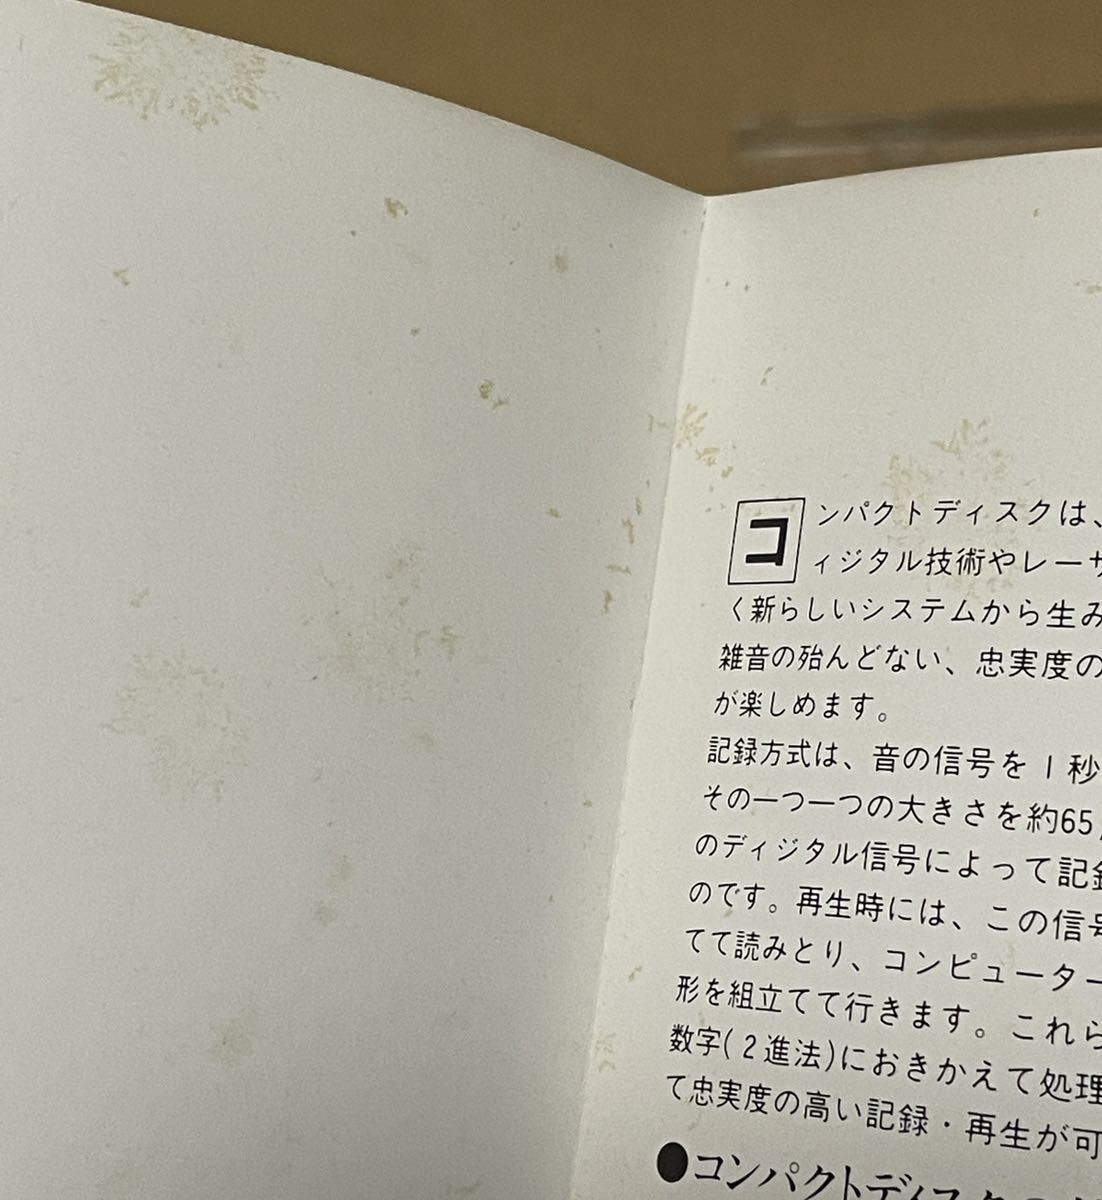 コンパクトディスクは、
ィジタル技術やレーザ
く新らしいシステムから生み
雑音の殆んどない、忠実度の
が楽しめます。
記録方式は、音の信号を1秒
その一つ一つの大きさを約65,
のディジタル信号によって記録
のです。再生時には、この信号
てて読みとり、コンピューター
形を組立てて行きます。これら
数字(2進法)におきかえて処理
て忠実度の高い記録・再生が可
●コンパクトディスク